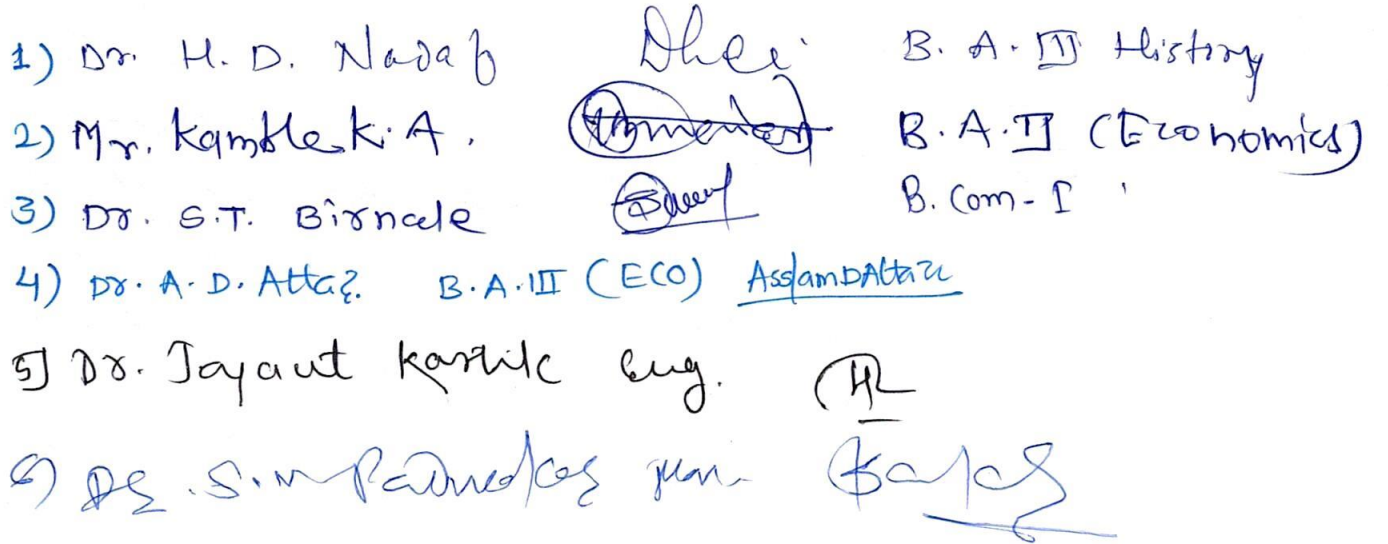 1) Dr. H. D. Nadaf B. A. III History
2) Mr. Kamble K. A. B. A. II (Economics)
3) Dr. S.T. Birnale B. Com - I
4) Dr. A. D. Attar. B. A. III (ECO) AsslamDAttar
5] Dr. Jayant Kartik Eng.
6) Dr. S. N.